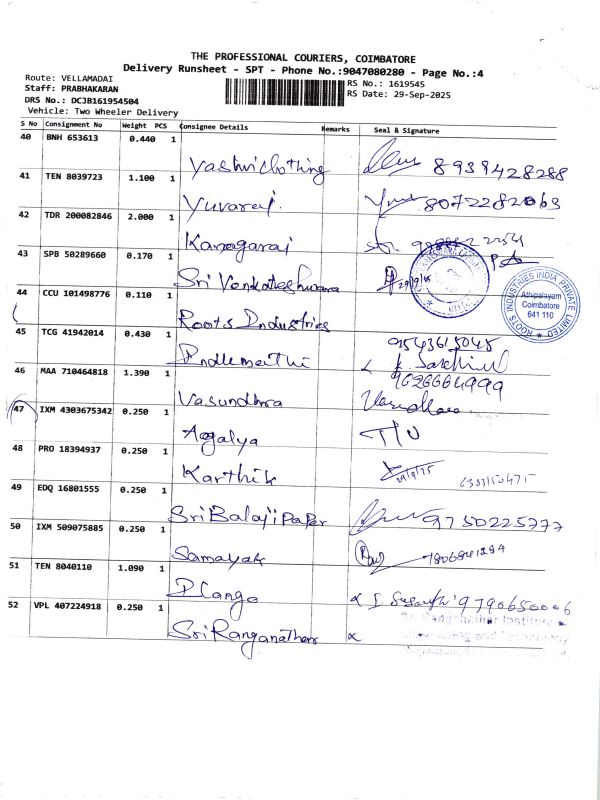 THE PROFESSIONAL COURIERS, COIMBATORE
Delivery Runsheet - SPT - Phone No.:9047080280 - Page No.:4
Route: VELLAMADAI
RS No.: 1619545
Staff: PRABHAKARAN
RS Date: 29-Sep-2025
DRS No.: DCJB161954504
Vehicle: Two Wheeler Delivery
S No Consignment No Weight PCS Consignee Details Remarks Seal & Signature
40 BNH 653613 0.440 1
Yashviclothing 8939428288
41 TEN 8039723 1.100 1
Yuvaraj.
42 TDR 200082846 2.000 1
Kanagaraj
43 SPB 50289660 0.170 1
Sri Venkateshwara 29/9/25
44 CCU 101498776 0.110 1
Roots Industries
ROOTS INDUSTRIES INDIA PRIVATE LIMITED
Athipalayam
Coimbatore
641 110
45 TCG 41942014 0.430 1
46 MAA 710464818 1.390 1
9626664999
Vasundhra
47 IXM 4303675342 0.250 1
Agalya
48 PRO 18394937 0.250 1
Karthik 29/9/25
49 EDQ 16801555 0.250 1
Sri Balaji Paper 9750225777
50 IXM 509075885 0.250 1
Samayak
51 TEN 8040110 1.090 1
9790656006
52 VPL 407224918 0.250 1
Sri Ranganathar